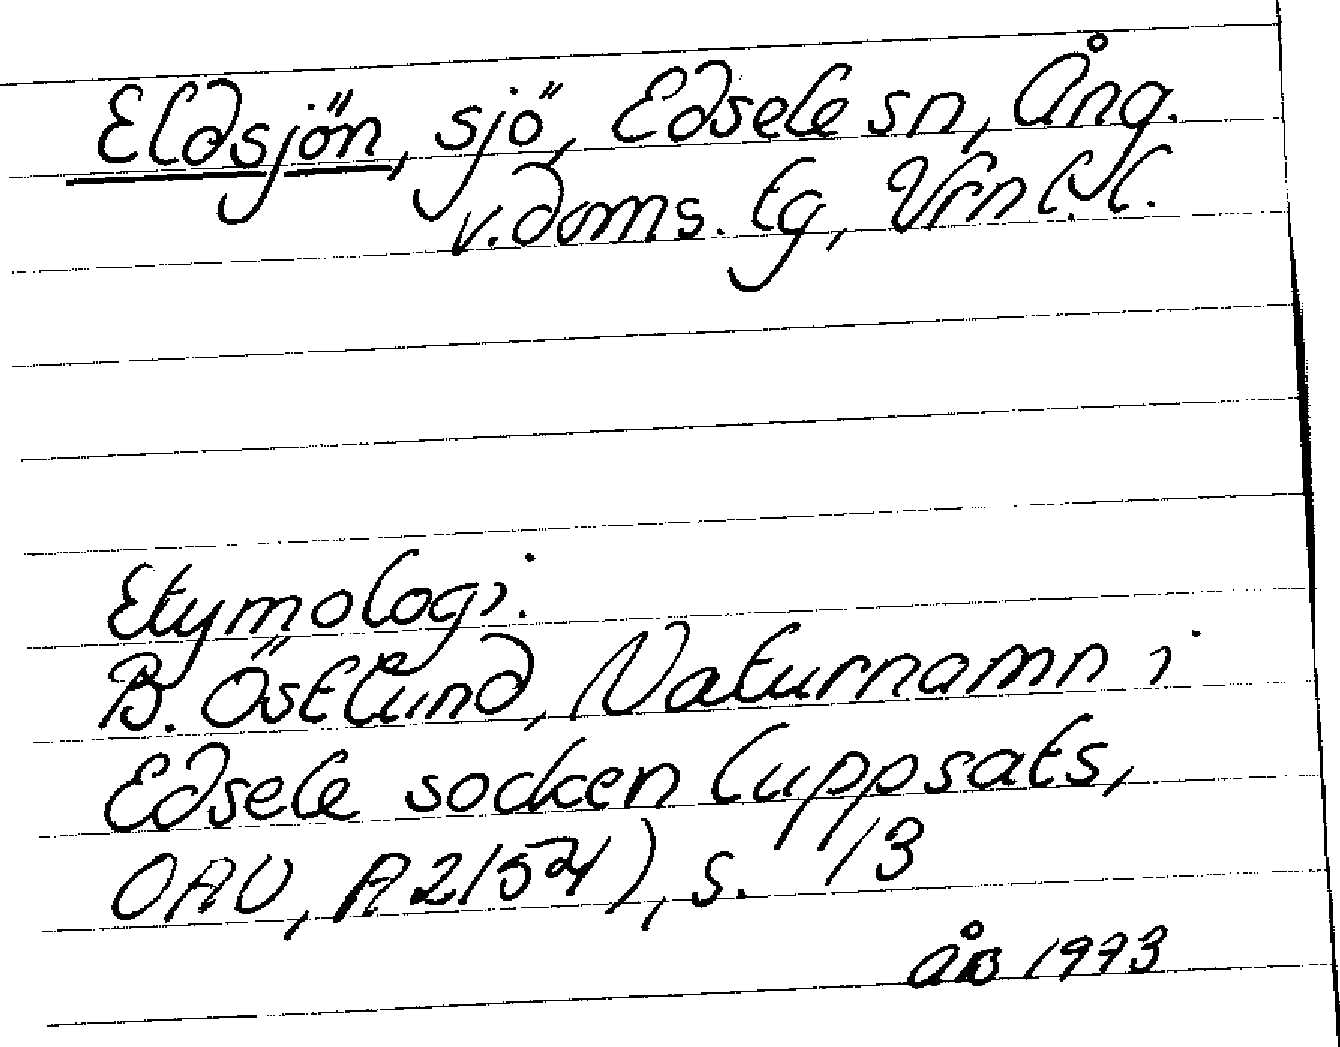 Eldsjön, sjö, Edsele sn, Ång.
v. doms. tg, Vrnl. l.
Etymologi.
B. Östlund, Naturnamn i
Edsele socken (uppsats,
OAU, A 2154), s. 13
åB 1973